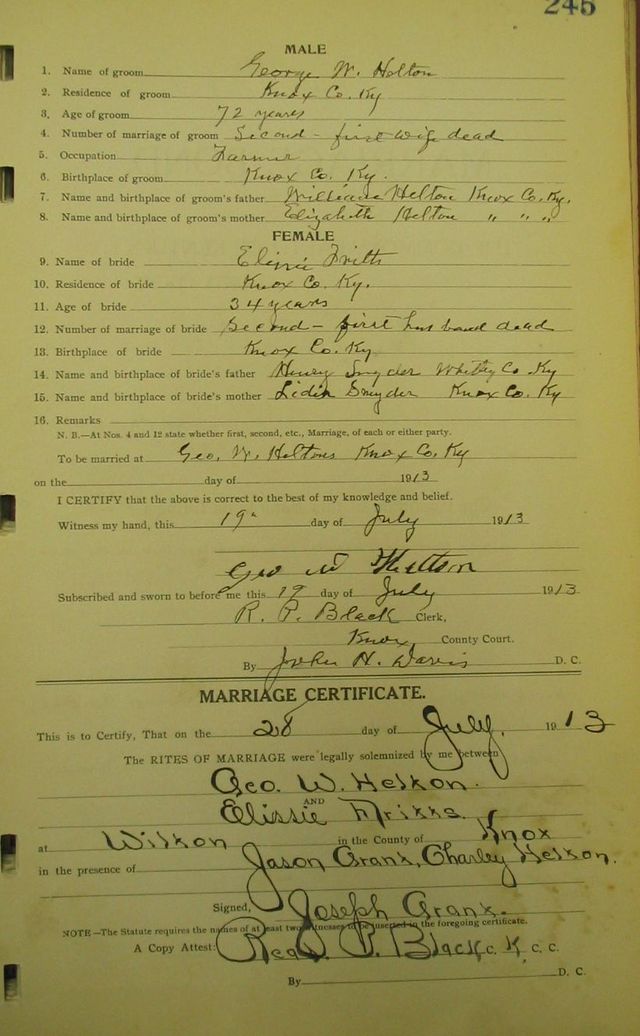 245
MALE
1. Name of groom George W. Helton
2. Residence of groom Knox Co. Ky
3. Age of groom 72 years
4. Number of marriage of groom Second - first wife dead
5. Occupation Farmer
6. Birthplace of groom Knox Co. Ky.
7. Name and birthplace of groom's father William Helton Knox Co. Ky.
8. Name and birthplace of groom's mother Elizabeth Helton " " "
FEMALE
9. Name of bride
10. Residence of bride Knox Co. Ky.
11. Age of bride 34 years
12. Number of marriage of bride Second - first husband dead
13. Birthplace of bride Knox Co. Ky
14. Name and birthplace of bride's father Henry Snyder Whitley Co Ky
15. Name and birthplace of bride's mother Lidia Snyder Knox Co. Ky
16. Remarks
N. B.—At Nos. 4 and 12 state whether first, second, etc., Marriage, of each or either party.
To be married at Geo. W. Heltons Knox Co. Ky
on the day of 1913
I CERTIFY that the above is correct to the best of my knowledge and belief.
Witness my hand, this 19" day of July 1913
Geo W Helton
Subscribed and sworn to before me this 19 day of July 1913
R. P. Black Clerk,
Knox County Court.
By John H. Davis D. C.
MARRIAGE CERTIFICATE.
This is to Certify, That on the 28 day of July, 1913
The RITES OF MARRIAGE were legally solemnized by me between
Geo. W. Helton.
AND
Elissie
at Wilton in the County of Knox
in the presence of Jason Grant, Charley Helton.
Signed, Joseph Grant.
NOTE—The Statute requires the names of at least two witnesses to be inserted in the foregoing certificate.
A Copy Attest: P. Black C. K. C. C.
By D. C.